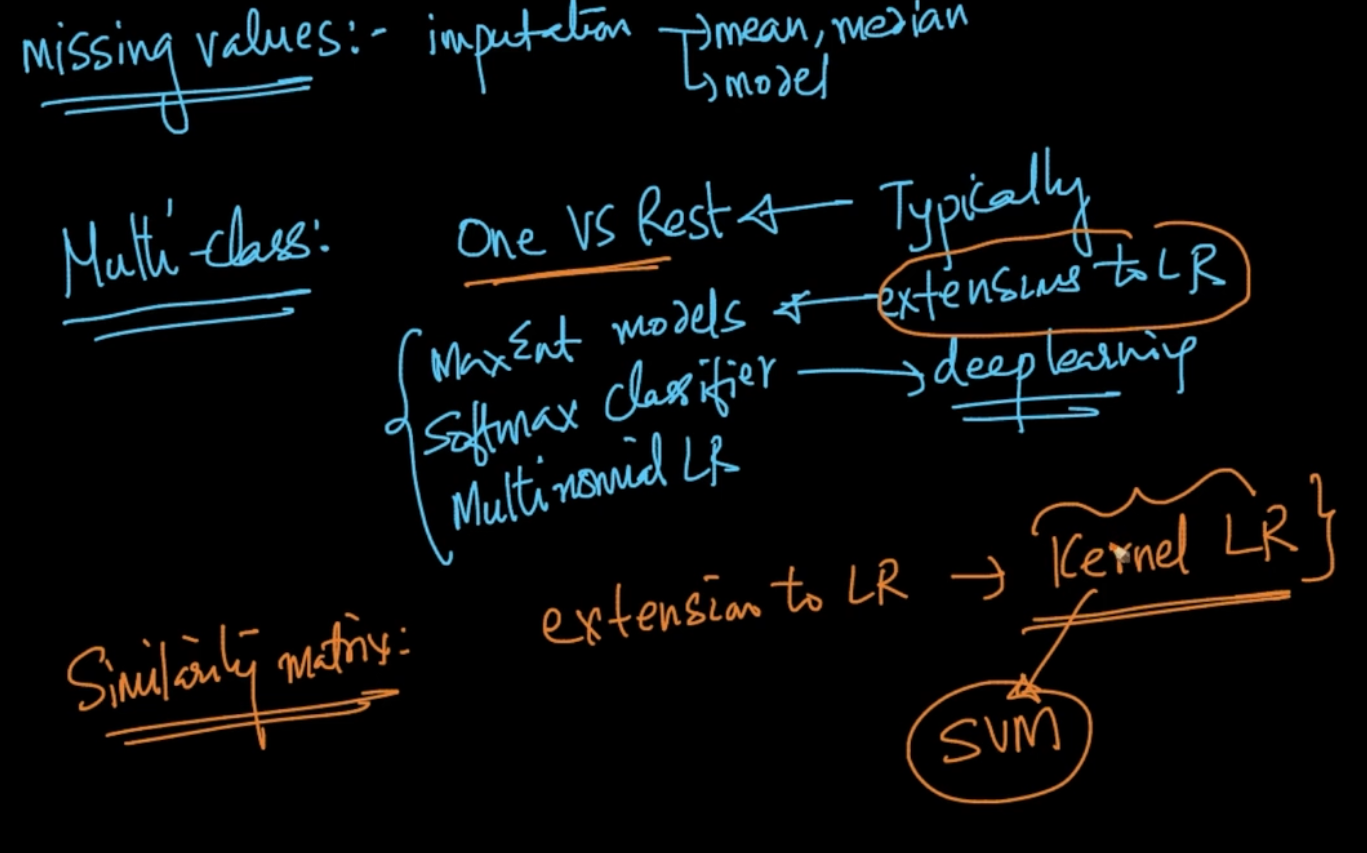 missing values:- imputation → mean, median
↳ model
Multi-class: One VS Rest ← Typically
MaxEnt models ← extensions to LR
Softmax classifier → deep learning
Multinomial LR
Similarity matrix: extension to LR → Kernel LR }
SVM